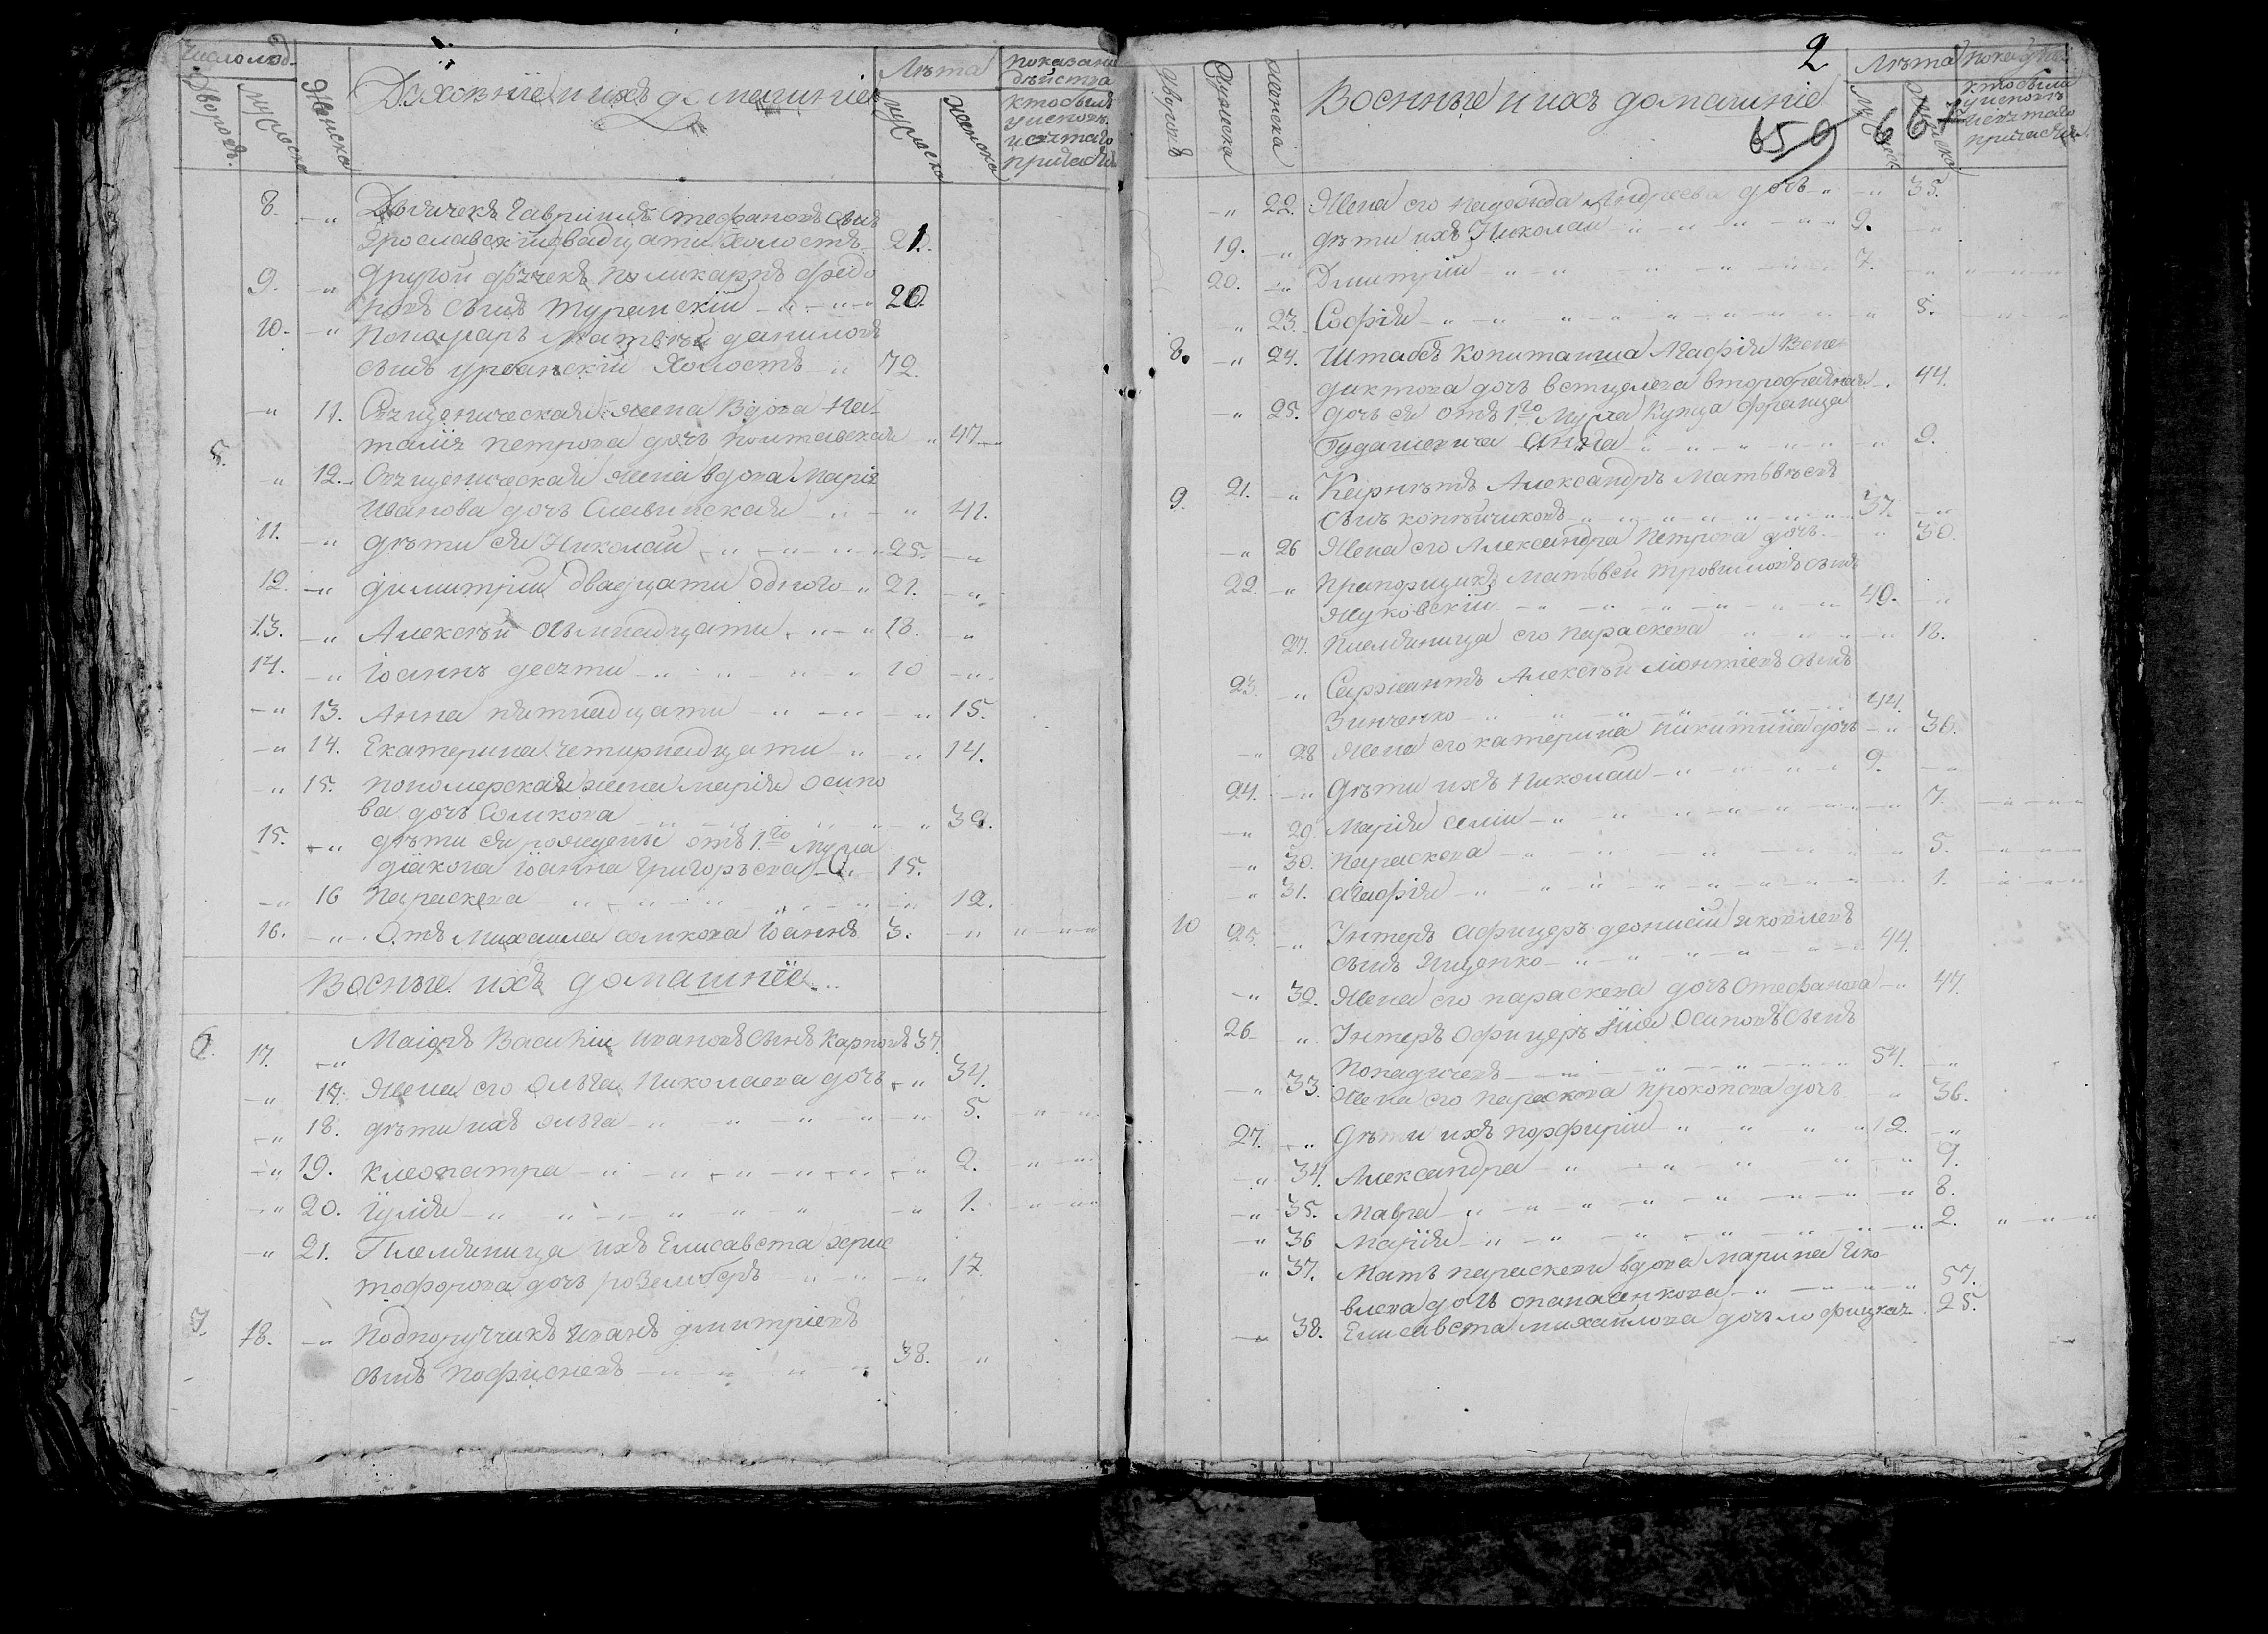 Число люд.
Дворовъ.
Мужеска
Женска
Духовніе и ихъ домашніе
Лѣта
Мужеска
женска
показаніе
дѣйства
кто былъ
у исповѣ.
и св҃таго
причастія
8. Дьячекъ Гавріилъ Стефановъ сынъ
Ярославскій двадцати холостъ 21.
9. Другой дьячекъ Поликарпъ Федо
ровъ сынъ Туранскій 20.
10. Понамарь Матвѣй Даниловъ
сынъ урбанскій Холостъ 72.
11. Священическая жена вдова На-
талія Петрова дочь полтавская 47
5.
12. Священическая жена вдова Марія
Иванова дочь Славинская 41.
11. дѣти ея Николай 25.
12. Димитрій двадцати одного 21.
13. Алексѣй осьмнадцати 18.
14. Іоаннъ десяти 10
13. Анна пятнадцати 15.
14. Екатерина четырнадцати 14.
15. Пономарская жена Марія осипо
ва дочь Сомкова 39.
15. дѣти ея рождены отъ 1го Мужа
діакона Іоанна Григорьева 15.
16 Параскева 12.
16. Отъ Михаила сомкова Іоаннъ 3.
Военые ихъ домашнёе
6. 17. Маіоръ Василій Ивановъ Сынъ Карповъ 37.
17. Жена его Ольга Николаева дочь 34.
18. дѣти ихъ Ольга 5.
19. Клеопатра 2.
20. Іулія 1.
21. Племяница ихъ Елисавета хрис
тофорова дочь розелмберъ 17.
7.
18. Подпоручикъ Иванъ дмитріевъ
сынъ 38.
2
дворовъ
Мужеска
женска
Военные и ихъ домашніе
659
Лѣта
66
показаніе
кто былъ
у исповѣ
и св҃таго
причастія
22. Жена его Надежда Андреева дочь 35.
19. Дѣти ихъ Николай 9.
20. Дмитрій 7.
23. Софія 5.
8. 24. Штабсъ капитанша Агафія Вене
диктова дочь второбрачная 44.
25. дочь ея отъ 1го Мужа Купца Франца
Анна 9.
9. 21. Карнетъ Александръ Матвѣевъ
сынъ копѣйчиковъ 37.
26 Жена его Александра Петрова дочь 30.
22. Прапорщикъ Матвей Трофимовъ сынъ
Жуковскій 49.
27. Племяница его Параскева 18.
23. Сержантъ Алексѣй Леонтіевъ сынъ
Зинченко 44.
28 Жена его катерина Никитина дочь 30.
24. Дѣти ихъ Николай 9.
29 Марія семи 7.
30. Параскева 5.
31. Агафія 1.
10 25. Унтеръ Афицеръ Деонисій яковлевъ
сынъ Ященко 44.
32. Жена его параскева дочь Стефанова 47.
26. Унтеръ Офицеръ Илія Осиповъ сынъ
Попадичевъ 54.
33. Жена его Параскева Прокопова дочь. 36.
27. Дѣти ихъ порфирій 12.
34. Александра 9.
35. Мавра 8.
36 Марія 2.
37. Мать параскеви вдова Марина Яко
влева дочь 57.
38. Елисавета михайлова дочь 25.